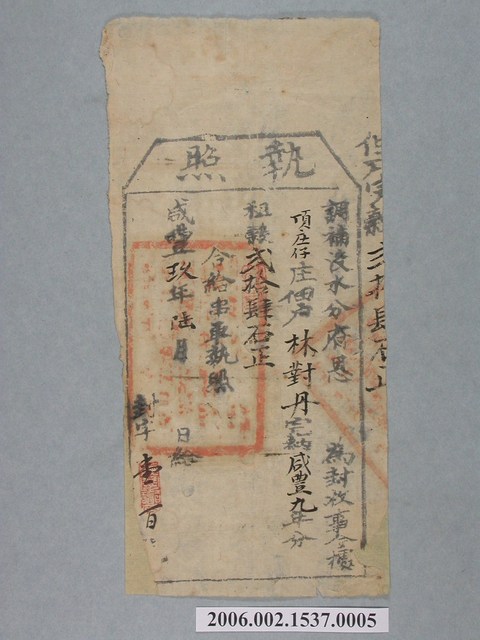 執照
調補淡水分府恩 為封收事今據
頂庄仔庄佃戶林對丹完納咸豐九年分
租穀弍拾肆石正
合給串單執照
咸豐玖年陸月 日給
封字壹百
弍拾肆石正
2006.002.1537.0005